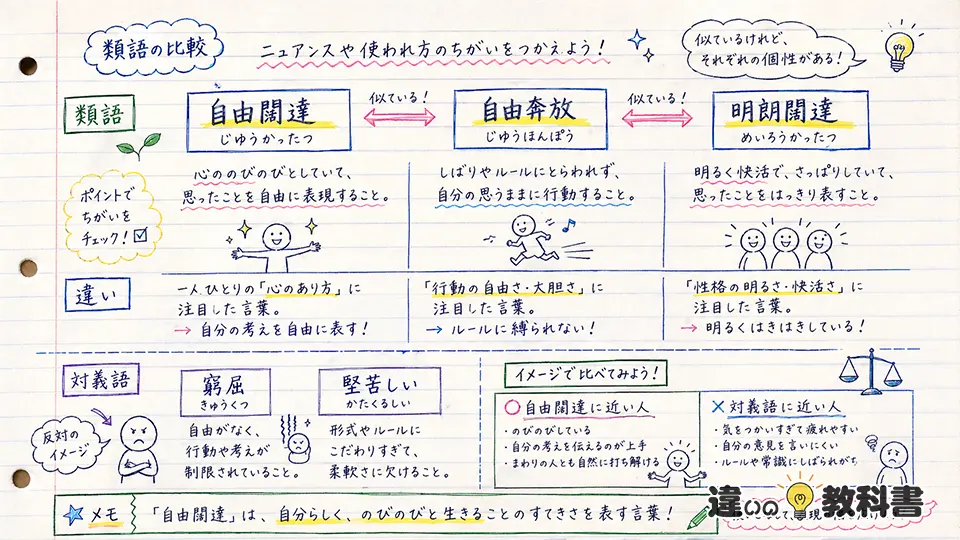 類語の比較
ニュアンスや使われ方のちがいをつかえよう！
似ているけれど、
それぞれの個性がある！
類語
自由闊達
じゆうかったつ
似ている！
自由奔放
じゆうほんぽう
似ている！
明朗闊達
めいろうかったつ
ポイントで
ちがいを
チェック！
心ののびのびとしていて、
思ったことを自由に表現すること。
しばりやルールにとらわれず、
自分の思うままに行動すること。
明るく快活で、さっぱりしていて、
思ったことをはっきり表すこと。
違い
一人ひとりの「心のあり方」に
注目した言葉。
→ 自分の考えを自由に表す！
「行動の自由さ・大胆さ」に
注目した言葉。
→ ルールに縛られない！
「性格の明るさ・快活さ」に
注目した言葉。
→ 明るくはきはきしている！
対義語
反対の
イメージ
窮屈
きゅうくつ
自由がなく、
行動や考えが
制限されていること。
堅苦しい
かたくるしい
形式やルールに
こだわりすぎて、
柔軟さに欠けること。
イメージで比べてみよう！
○自由闊達に近い人
・のびのびしている
・自分の考えを伝えるのが上手
・まわりの人とも自然に打ち解ける
×対義語に近い人
・気をつかいすぎて疲れやすい
・自分の意見を言いにくい
・ルールや常識にしばられがち
メモ
「自由闊達」は、自分らしく、のびのびと生きることのすてきさを表す言葉！
違いの教科書